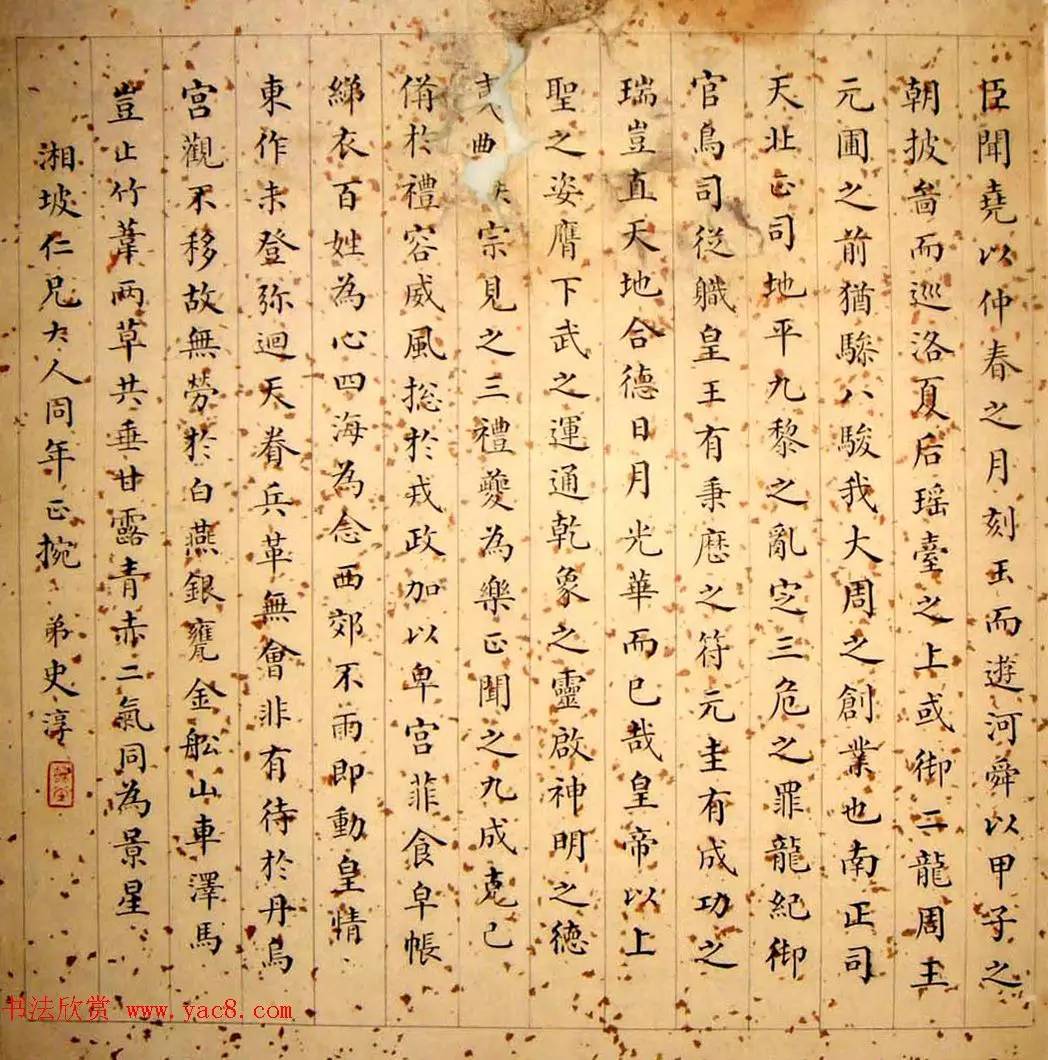 臣聞堯以仲春之月刻玉而遊河舜以甲子之
朝披啚而巡洛夏后瑶臺之上或御二龍周王
元圃之前猶驂八駿我大周之創業也南正司
天北正司地平九黎之亂定三危之罪龍紀御
官鳥司從職皇王有秉歷之符元圭有成功之
瑞豈直天地合德日月光華而已哉皇帝以上
聖之姿膺下武之運通乾象之靈啟神明之德
夷典秩宗見之三禮夔為樂正聞之九成克己
備於禮容威風摠於戎政加以卑宮菲食皁帳
綈衣百姓為心四海為念西郊不雨即動皇情
東作未登弥迴天眷兵革無會非有待於丹烏
宮觀不移故無勞於白燕銀甕金船山車澤馬
豈止竹葦兩草共垂甘露青赤二氣同為景星
湘坡仁兄大人同年正捥 弟史淳
书法欣赏 www.yac8.com